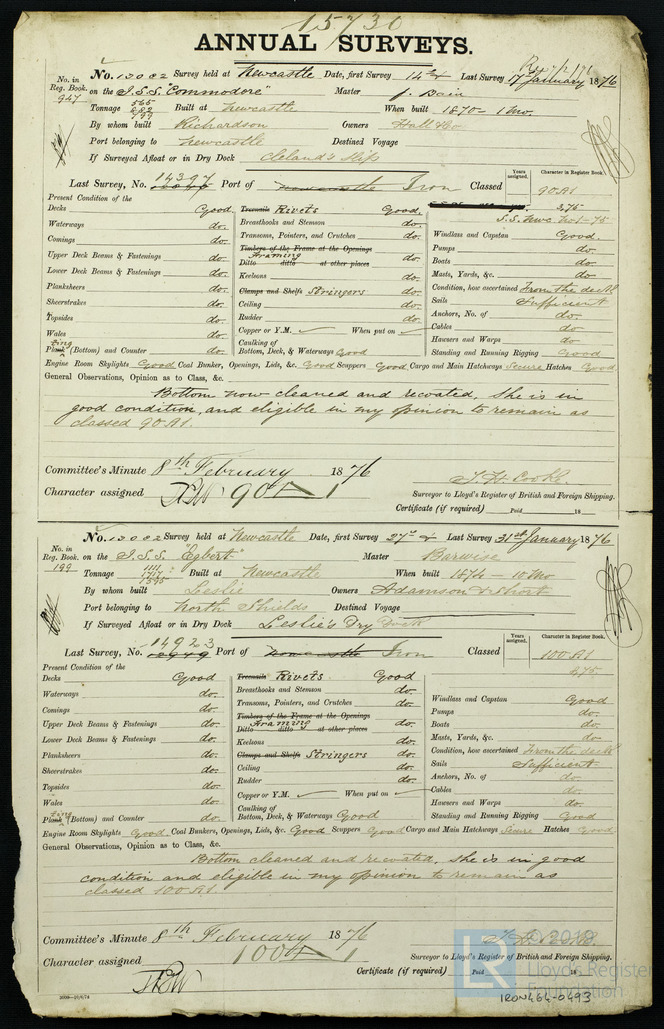 15730
ANNUAL SURVEYS.
No. 12002 Survey held at Newcastle Date, first Survey 14th Last Survey 17th January 1876
No. in Reg. Book. 947 on the I.S.S. "Commodore" Master J. Bain
Tonnage 565 Built at Newcastle When built 1870 - 1 Mo.
By whom built Richardson Owners Hall & Co
Port belonging to Newcastle Destined Voyage
If Surveyed Afloat or in Dry Dock Cleland's Slip
Last Survey, No. 14397 Port of Newcastle Iron Classed Years assigned. Character in Register Book. 90 A1
Present Condition of the 3,75
Decks Good Treenails Rivets Good S.S. Nwc. No1-75
Waterways do. Breasthooks and Stemson do. Windlass and Capstan Good.
Comings do. Transoms, Pointers, and Crutches do. Pumps do.
Upper Deck Beams & Fastenings do. Timbers of the Frame at the Openings Framing do. Boats do.
Ditto ditto at other places
Lower Deck Beams & Fastenings do. Keelsons do. Masts, Yards, &c. do.
Planksheers do. Clamps and Shelfs Stringers do. Condition, how ascertained From the deck
Sheerstrakes do. Ceiling do. Sails Sufficient
Topsides do. Rudder do. Anchors, No. of do.
Wales do. Copper or Y.M. When put on Cables do.
Plating (Bottom) and Counter do. Caulking of Bottom, Deck, & Waterways Good Hawsers and Warps do.
Standing and Running Rigging Good
Engine Room Skylights Good Coal Bunker, Openings, Lids, &c. Good Scuppers Good Cargo and Main Hatchways Secure Hatches Good
General Observations, Opinion as to Class, &c.
Bottom now cleaned and recoated. She is in
good condition, and eligible in my opinion to remain as
classed 90 A1.
Committee's Minute 8th February 1876
Character assigned 90 A 1
T. H. Cooke.
Surveyor to Lloyd's Register of British and Foreign Shipping.
Certificate (if required) Paid 18
No. 12002 Survey held at Newcastle Date, first Survey 27th Last Survey 31st January 1876
No. in Reg. Book 199 on the I.S.S. "Egbert" Master Barwise
Tonnage 1111 Built at Newcastle When built 1874 - 10 Mo
By whom built Leslie Owners Adamson & Short
Port belonging to North Shields Destined Voyage
If Surveyed Afloat or in Dry Dock Leslie's Dry Dock
Last Survey, No. 14923 Port of Newcastle Iron Classed Years assigned. Character in Register Book. 100 A1
Present Condition of the
Decks Good Treenails Rivets Good
Waterways do. Breasthooks and Stemson do. Windlass and Capstan Good
Comings do. Transoms, Pointers, and Crutches do. Pumps do.
Upper Deck Beams & Fastenings do. Timbers of the Frame at the Openings Framing do. Boats do.
Ditto ditto at other places
Lower Deck Beams & Fastenings do. Keelsons do. Masts, Yards, &c. do.
Planksheers do. Clamps and Shelfs Stringers do. Condition, how ascertained From the deck
Sheerstrakes do. Ceiling do. Sails Sufficient
Topsides do. Rudder do. Anchors, No. of do.
Wales do. Copper or Y.M. When put on Cables do.
Plating (Bottom) and Counter do. Caulking of Bottom, Deck, & Waterways Good Hawsers and Warps do.
Standing and Running Rigging Good
Engine Room Skylights Good Coal Bunkers, Openings, Lids, &c. Good Scuppers Good Cargo and Main Hatchways Secure Hatches Good
General Observations, Opinion as to Class, &c.
Bottom cleaned and recoated, She is in good
condition and eligible in my opinion to remain as
classed 100 A1.
Committee's Minute 8th February 1876
Character assigned 100 A 1
Surveyor to Lloyd's Register of British and Foreign Shipping.
Certificate (if required) Paid 18
LR © 2019 Lloyds Register Foundation
IRON464-0493